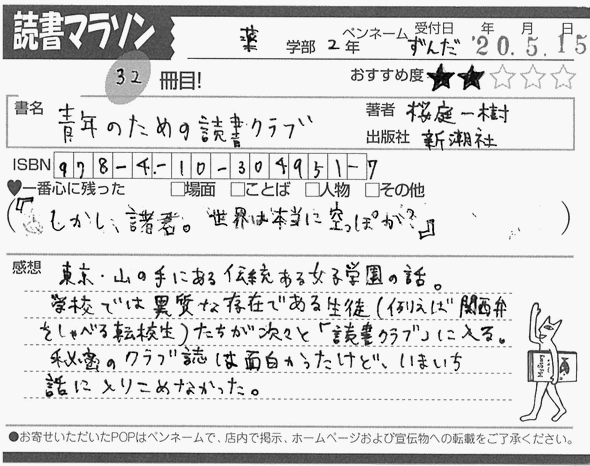 読書マラソン
薬 学部 2 年 ペンネーム ずんだ 受付日 '20年.5月.15日
32 冊目! おすすめ度 ★★☆☆☆
書名 青年のための読書クラブ 著者 桜庭一樹
出版社 新潮社
ISBN 978-4-10-304951-7
♥一番心に残った □場面 □ことば □人物 □その他
(『しかし、諸君。世界は本当に空っぽか?』)
感想 東京・山の手にある伝統ある女子学園の話。
学校では異質な存在である生徒(例えば関西弁
をしゃべる転校生)たちが次々と「読書クラブ」に入る。
秘密のクラブ誌は面白かったけど、いまいち
話に入りこめなかった。
●お寄せいただいたPOPはペンネームで、店内で掲示、ホームページおよび宣伝物への転載をご了承ください。